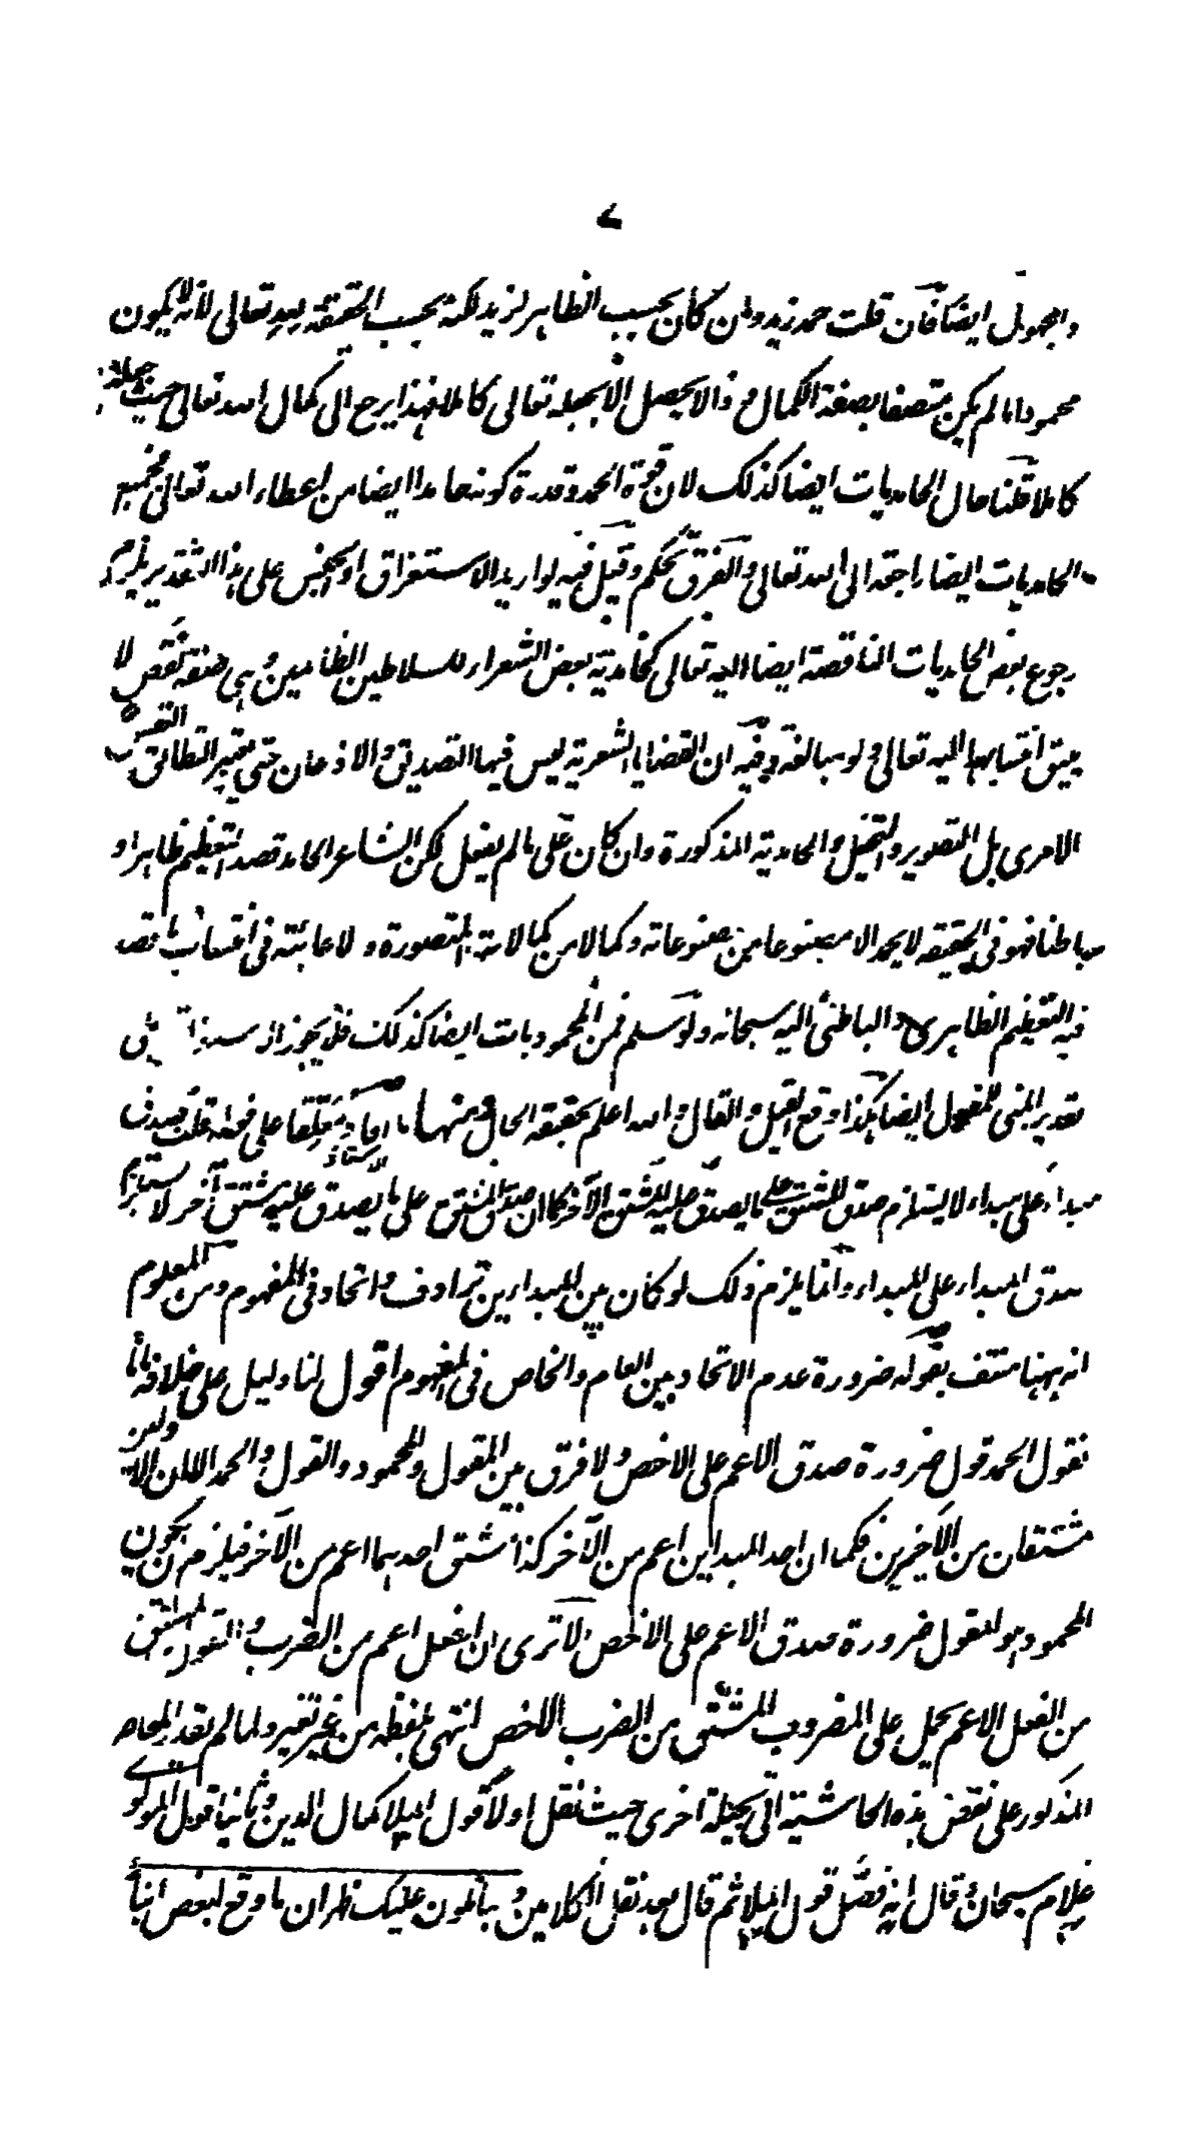 ٧
والمجهول ايضا فان قلت حمد زيد وان كان بحسب الظاهر لزيد لكنه بحسب الحقيقة لله تعالى لانه لا يكون
محمودا ما لم يكن متصفا بصفة الكمال وذا لا يحصل الا بجعله تعالى كاملا فهذا يرجع الى كمال الله تعالى حيث جعله
كاملا قلنا حال الحامديات ايضا كذلك لان قوة الحمد وقدرة كونه حامدا ايضا من اعطاء الله تعالى فجميع
الحامديات ايضا راجعة الى الله تعالى والفرق تحكم وقيل فيه لو اريد الاستغراق او الجنس على هذا التقدير يلزم
رجوع بعض الحامديات الناقصة ايضا اليه تعالى كحامدية بعض الشعراء للسلاطين الظالمين وهي صفة نقص لا
يليق انتسابها اليه تعالى ولو مبالغة وفيه ان القضايا الشعرية ليس فيها التصديق والاذعان حتى يعتبر التطابق النفس
الامرى بل التصوير والتخيل والحامدية المذكورة وان كان على ما لم يفعل لكن الشاعر الحامد قصد التعظيم ظاهرا و
باطنا فهو في الحقيقة لا يحمد الا مصنوعا من مصنوعاته وكمالا من كمالاته المتصورة ولا عائبة في انتساب ما قصد
فيه التعظيم الظاهرى والباطنى اليه سبحانه ولو سلم فمن المحموديات ايضا كذلك فلا يجوز على
تقدير المبنى للمفعول ايضا هكذا وقع القيل والقال والله اعلم بحقيقة الحال ومنها ما افاد متعلقا على قلت صدق
مبداء على مبداء لا يستلزم صدق المشتق على ما يصدق عليه المشتق الآخر كما ان صدق المشتق على ما يصدق عليه مشتق آخر لا يستلزم
صدق المبداء على المبداء وانما يلزم ذلك لو كان بين المبدايين ترادف واتحاد في المفهوم ومن المعلوم
انه ههنا منتف بقوله ضرورة عدم الاتحاد بين العام والخاص في المفهوم اقول لنا دليل على خلافه فانا
نقول الحمد قول ضرورة صدق الاعم على الاخص ولا فرق بين المقول والمحمود والقول والحمد الا ان الاولين
مشتقان من الآخرين فكما ان احد المبدايين اعم من الآخر كذا مشتق احدهما اعم من الآخر فيلزم ان يكون
المحمود هو المقول ضرورة صدق الاعم على الاخص الا ترى ان الفعل اعم من الضرب والمفعول المشتق
من الفعل الاعم يحمل على المضروب المشتق من الضرب الاخص انتهى بلفظه من غير تغير ولما لم يقدر المعاصر
المذكور على نقض هذه الحاشية اتى بحيلة اخرى حيث نقل اولا قول الملا كمال الدين وثانيا قول المولوى
غلام سبحان وقال انه فصل قول الملا ثم قال بعد نقل الكلامين وبما تلون عليك ظهر ان ما وقع لبعض ابناء